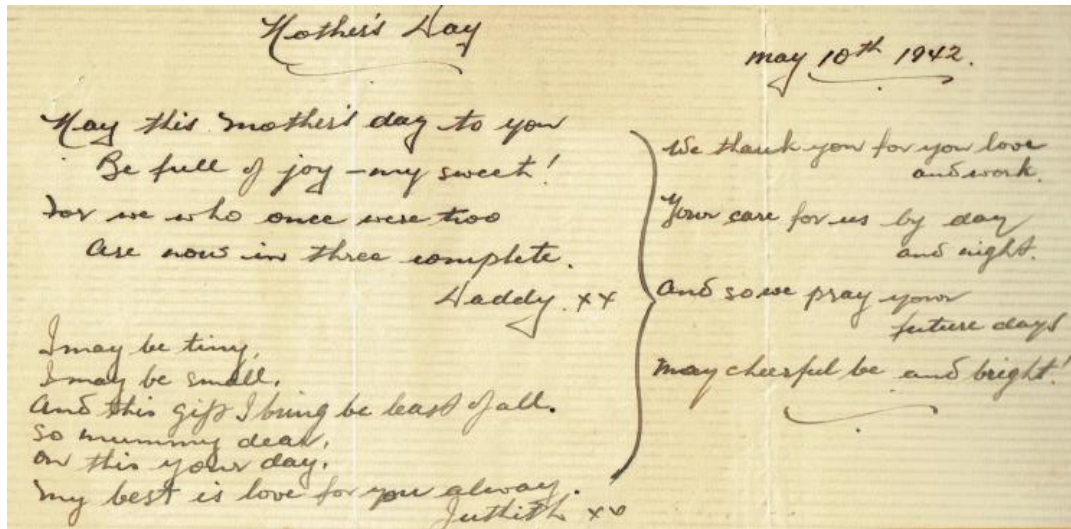 Mother's Day
May 10th 1942.
May this Mother's day to you
Be full of joy - my sweet!
For we who once were two
Are now in three complete.
Daddy. xx
I may be tiny,
I may be small,
And this gift I bring be least of all.
So mummy dear,
on this your day,
My best is love for you alway.
Judith xx
We thank you for you love
and work.
Your care for us by day
and night.
And so we pray your
future days
May cheerful be and bright!